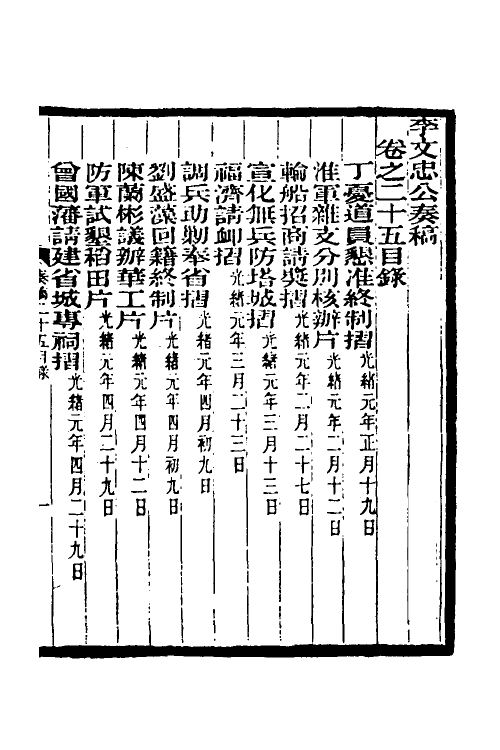 李文忠公奏稿
卷之二十五目錄
丁憂道員懇准終制摺光緒元年正月十九日
淮軍雜支分別核辦片光緒元年二月十二日
輪船招商請獎摺光緒元年二月二十七日
宣化無兵防塔城摺光緒元年三月十三日
福濟請卹摺光緒元年三月二十三日
調兵助剿奉省摺光緒元年四月初九日
劉盛藻回籍終制片光緒元年四月初九日
陳蘭彬議辦華工片光緒元年四月十二日
防軍試墾稻田片光緒元年四月二十九日
曾國藩請建省城專祠摺光緒元年四月二十九日
奏稿二十五目錄
一